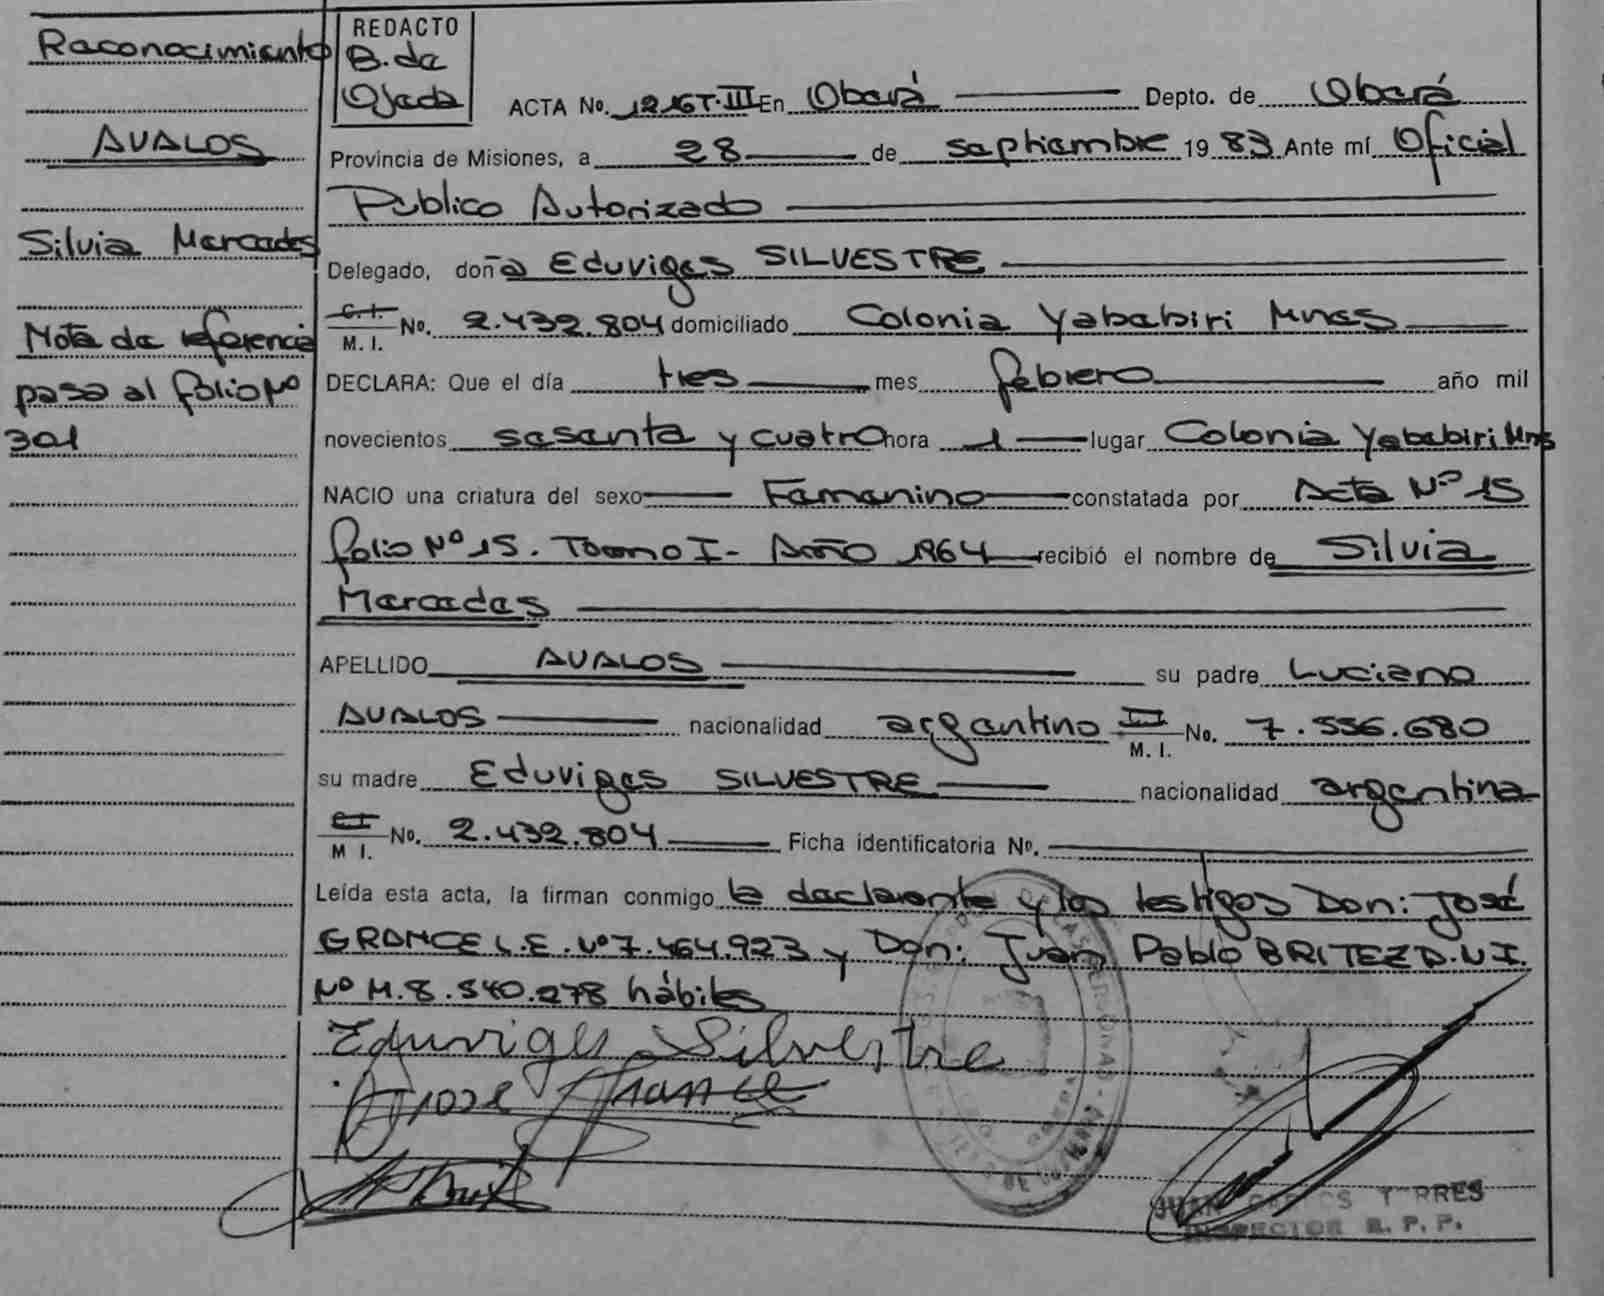 Reconocimiento
AVALOS
Silvia Mercedes
Nota de referencia
pasa al folio Nº
301
REDACTO
B. de
Ojeda
ACTA No. 1216 T. III En Oberá Depto. de Oberá
Provincia de Misiones, a 28 de septiembre 1983 Ante mí Oficial
Público Autorizado
Delegado, doña Eduviges SILVESTRE
C.I.
M. I. No. 2.432.804 domiciliado Colonia Yabebiri Mnes
DECLARA: Que el día tres mes febrero año mil
novecientos sesenta y cuatro hora 1 lugar Colonia Yabebiri Mns
NACIO una criatura del sexo Femenino constatada por Acta Nº 15
folio Nº 15. Tomo I- Año 1964 recibió el nombre de Silvia
Mercedes
APELLIDO AVALOS su padre Luciano
AVALOS nacionalidad argentino M. I. No. 7.556.680
su madre Eduviges SILVESTRE nacionalidad argentina
C I
M I. No. 2.432.804 Ficha identificatoria No.
Leída esta acta, la firman conmigo la declarante y los testigos Don: José
GRANCE L.E. Nº 7.464.923 y Don: Juan Pablo BRITEZ D.N.I.
Nº M.8.540.278 hábiles
Eduviges Silvestre
Jose Grance
JUAN CARLOS TORRES
INSPECTOR R. P. P.